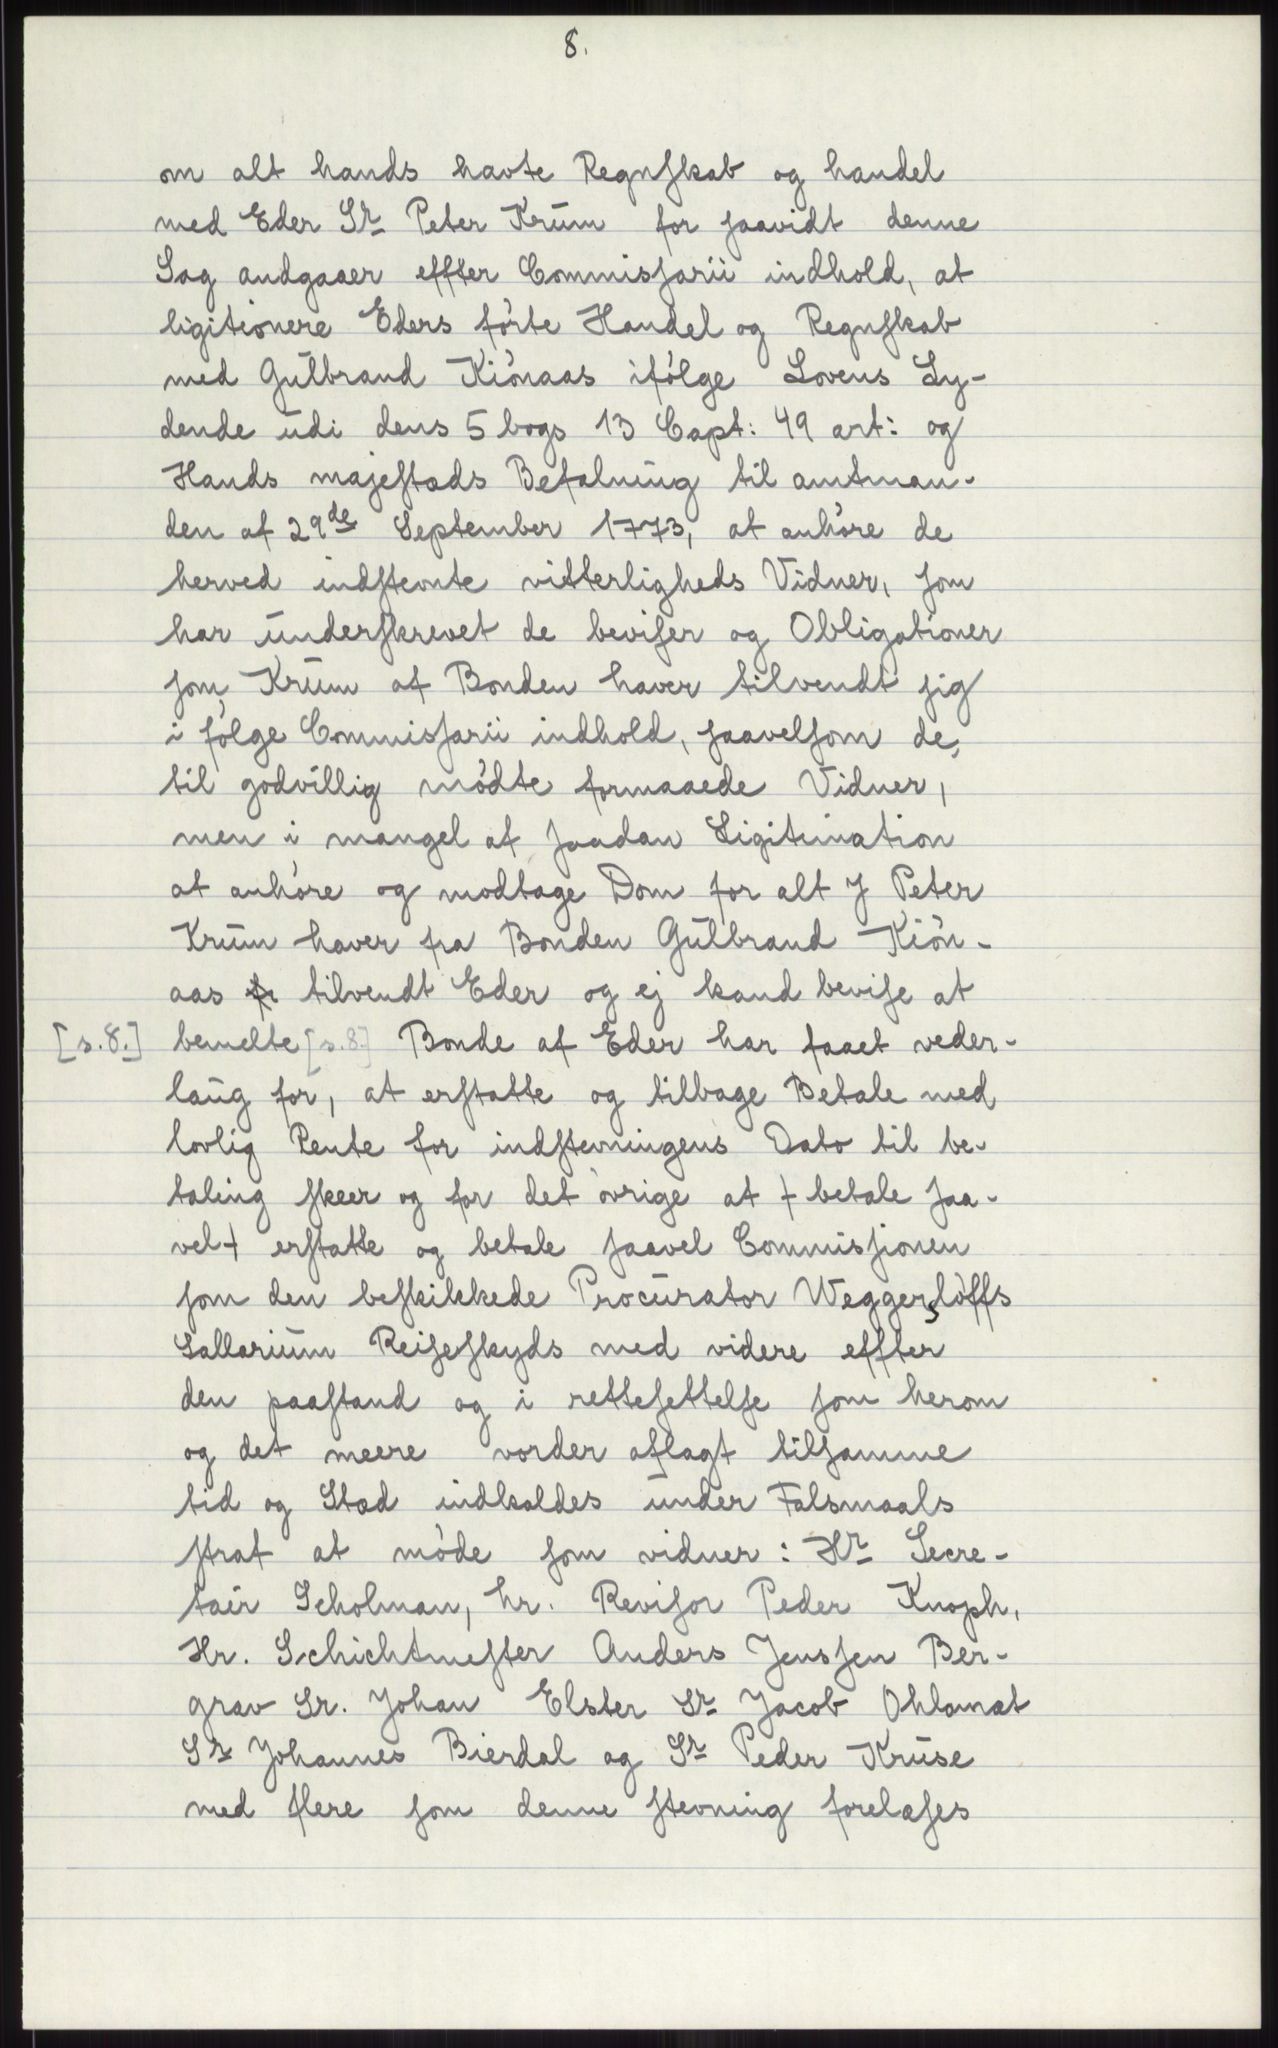 8.
om alt hands havte Regnskab og handel
med Eder Sr Peter Krum for saavidt denne
Sag andgaaer effter Commissarii indhold, at
ligitionere Eders førte Handel og Regnskab
med Gulbrand Kiönaas ifølge Lovens Ly-
dende udi dens 5 bogs 13 Capt: 49 art: og
Hands majestæds Befalning til amtman-
den af 29de September 1773, at anhøre de
herved indstevnte vitterligheds Vidner, som
har underskrevet de beviser og Obligationer
som Krum af Bonden haver tilvendt sig
i følge Commissarii indhold, saavelsom de
til godvillig mødte formaaede Vidner,
men i mangel af saadan Ligitimation
at anhøre og modtage Dom for alt J Peter
Krum haver fra Bonden Gulbrand Kiön-
aas tilvendt Eder og ej kand bevise at
[s.8.] bemelte [s.8.] Bonde af Eder har faaet veder-
laug for, at erstatte og tilbage Betale med
lovlig Rente for indstevningens Dato til be-
taling skeer og for det øvrige at + betale saa-
vel + erstatte og betale saavel Commissionen
som den beskikkede Procurator Weggersløffs
Sallarium Reiseskyds med videre effter
den paastand og i rettesettelse som herom
og det meere vorder aflagt tilsamme
tid og Stæd indkaldes under Falsmaals
straf at møde som vidner: Hr Secre-
tair Scholman, hr. Revisor Peder Knoph,
Hr. Schichtmester Anders Jenssen Ber-
grav Sr. Johan Elster Sr Jacob Ohlamat
Sr Johannes Bierdal og Sr Peder Kruse
med flere som denne stevning forelæses